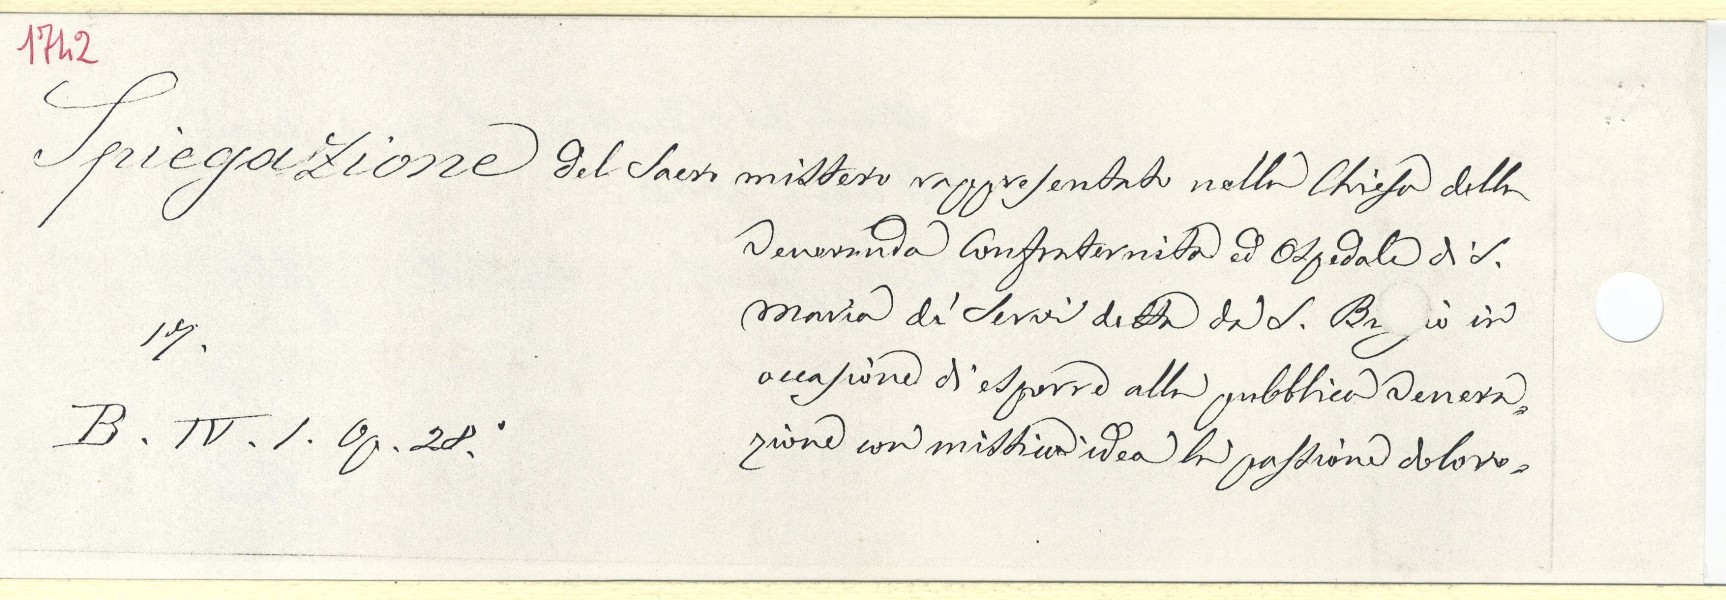 1742
Spiegazione del Sacro mistero rappresentato nella Chiesa della
Veneranda Confraternita ed Ospedale di S.
Maria de' Servi detta da S. B i o in
occasione di esporre alla pubblica Venera=
17.
zione con mistica idea la passione doloro=
B. IV. 1. Op. 28.